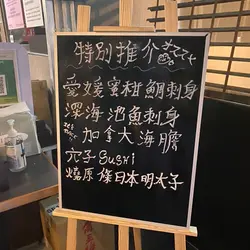 特別推介
愛媛蜜柑鯛刺身
深海池魚刺身
加拿大海膽
穴子Sushi
燒原條日本明太子